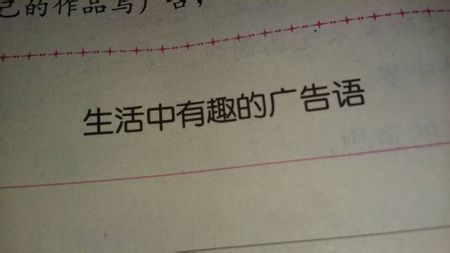 己的作品写广告，
生活中有趣的广告语